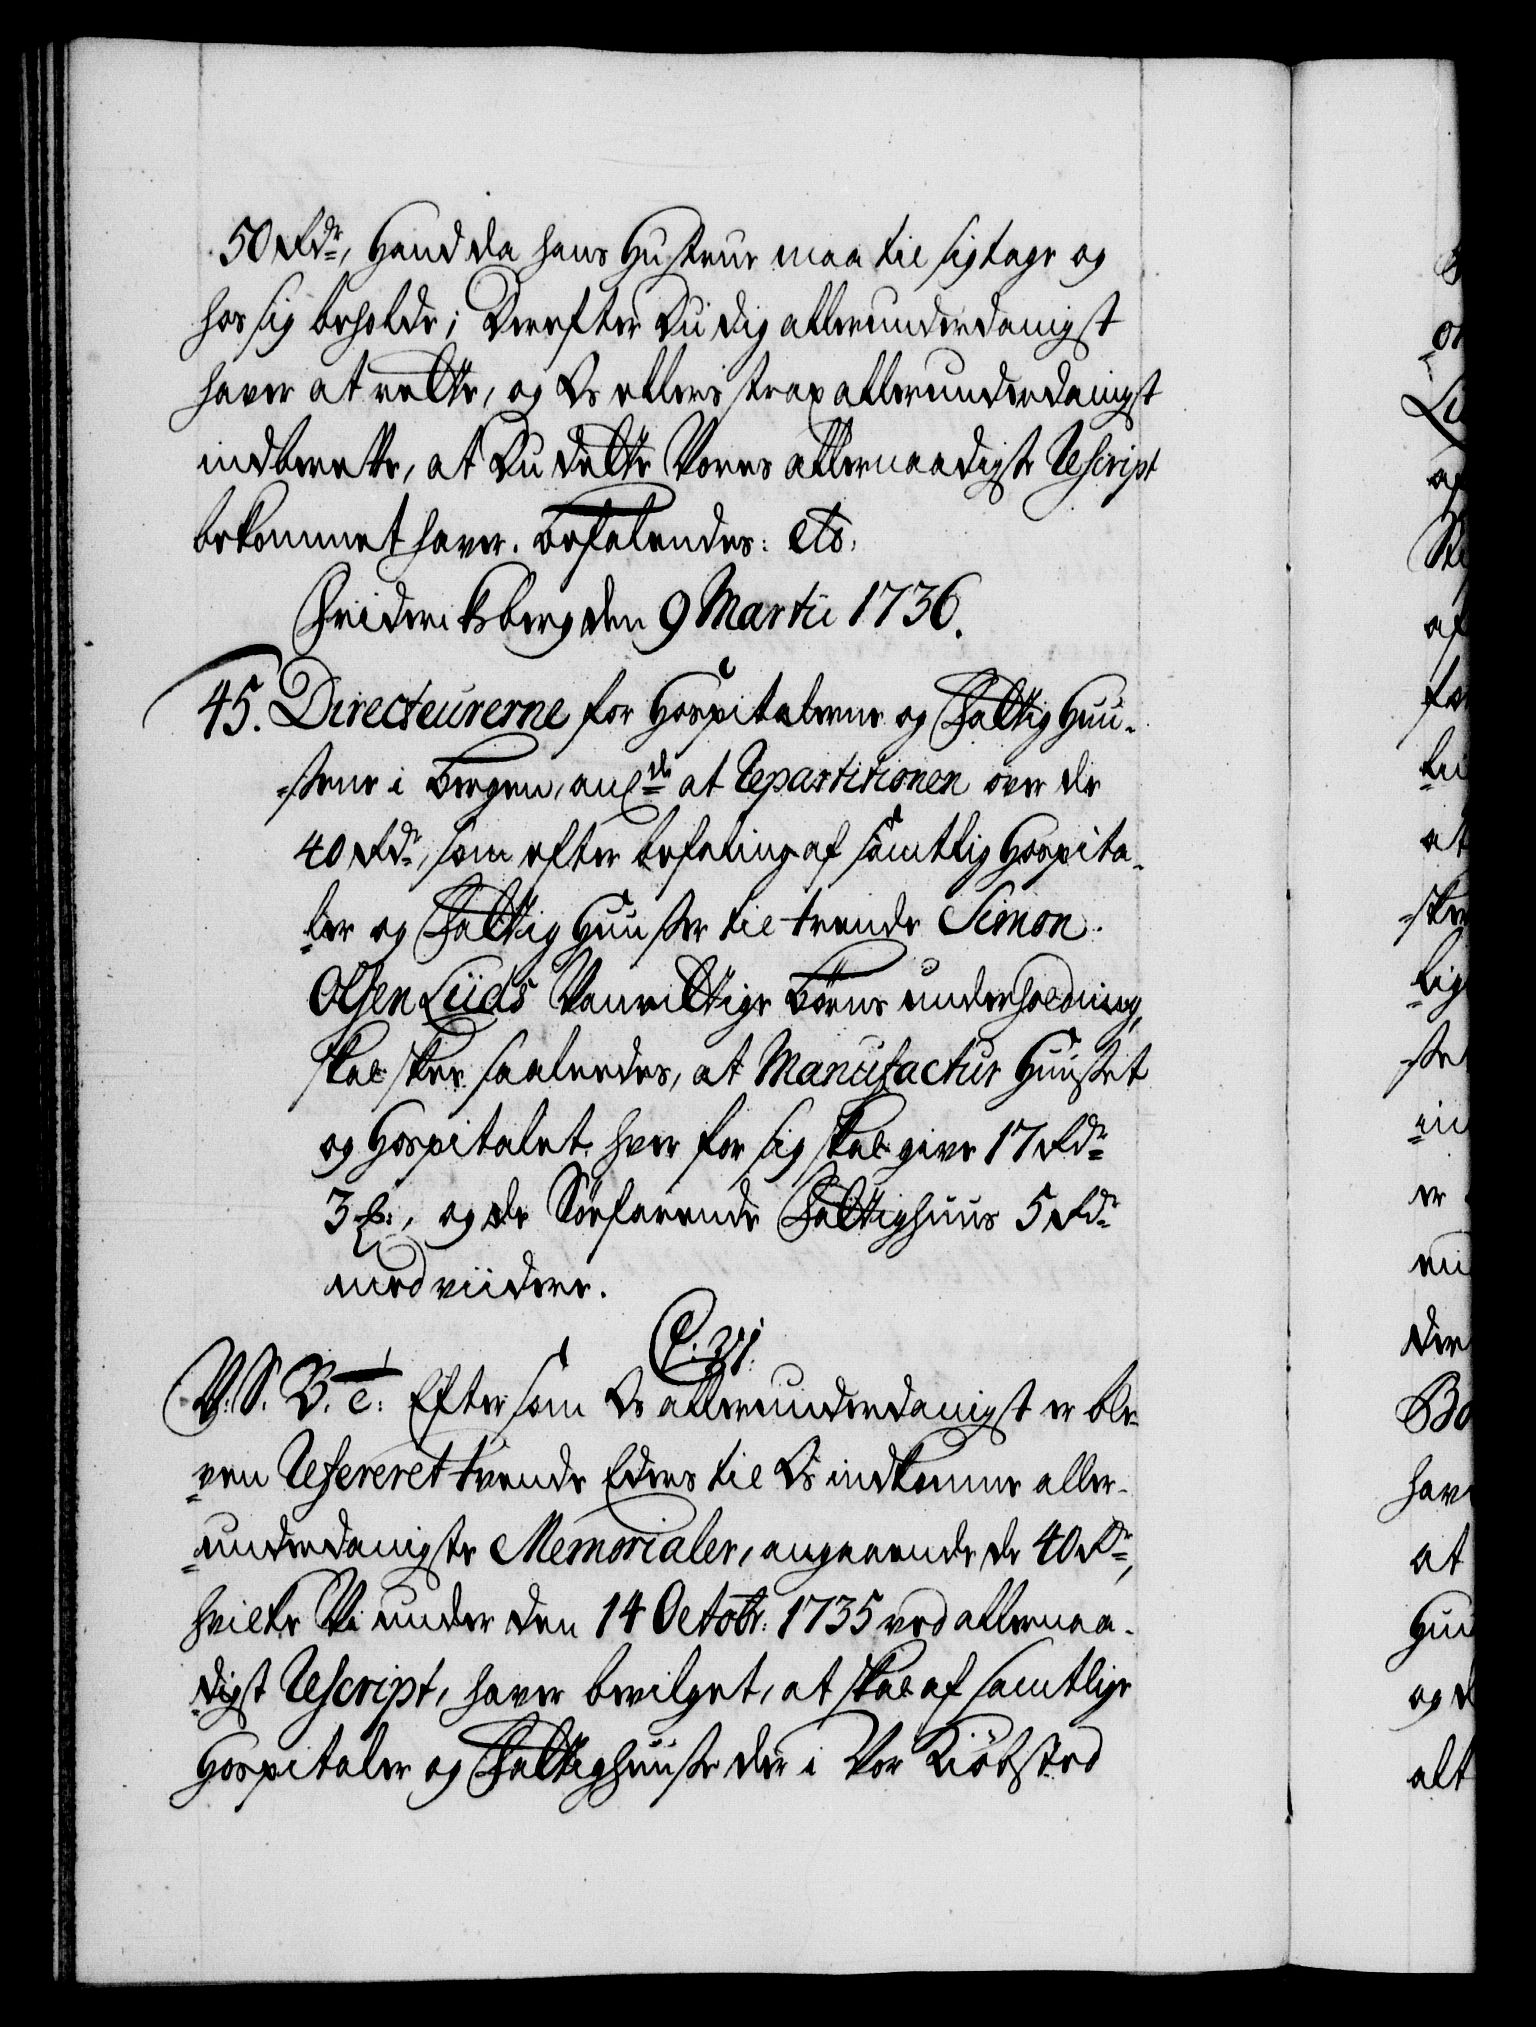 50 Rdr, Hand da hans Hustrue maa til sig tage og
hos sig beholde; Derefter Du dig allerunderdanigst
haver at rette, og Os ellers strax allerunderdanigst
indberette, at Du dette Vores allernaadigste Rescript
bekommet haver. Befalendes: etc.
Friderichsberg den 9 Martii 1736.
45. Directeurerne for Hospitalerne og Fattig Huu-
-sene i Bergen, angde at Repartitionen over de
40 Rdr, som efter befaling af samtlig Hospita-
-ler og Fattig Huuser til trende Simon
Olsen Lüds Vanvittige Børns underholdning,
skal skee saaledes, at Manufactur Huuset
og Hospitalet hver for sig skal give 17 Rdr
3 ß:, og de Søefarende Fattighuus 5 Rdr
med viidere.
C. VI.
V. S. B. T. Eftersom Os allerunderdanigst er ble-
-ven Refereret tvende Eders til Os indkomne aller-
-underdanigste Memorialer, angaaende de 40 Rdr,
hvilke Vi under den 14 Octobr: 1735 ved allernaa-
-digst Rescript, haver bevilget, at skal af samtlige
Hospitaler og Fattighuuse der i Vor Kiøbsted